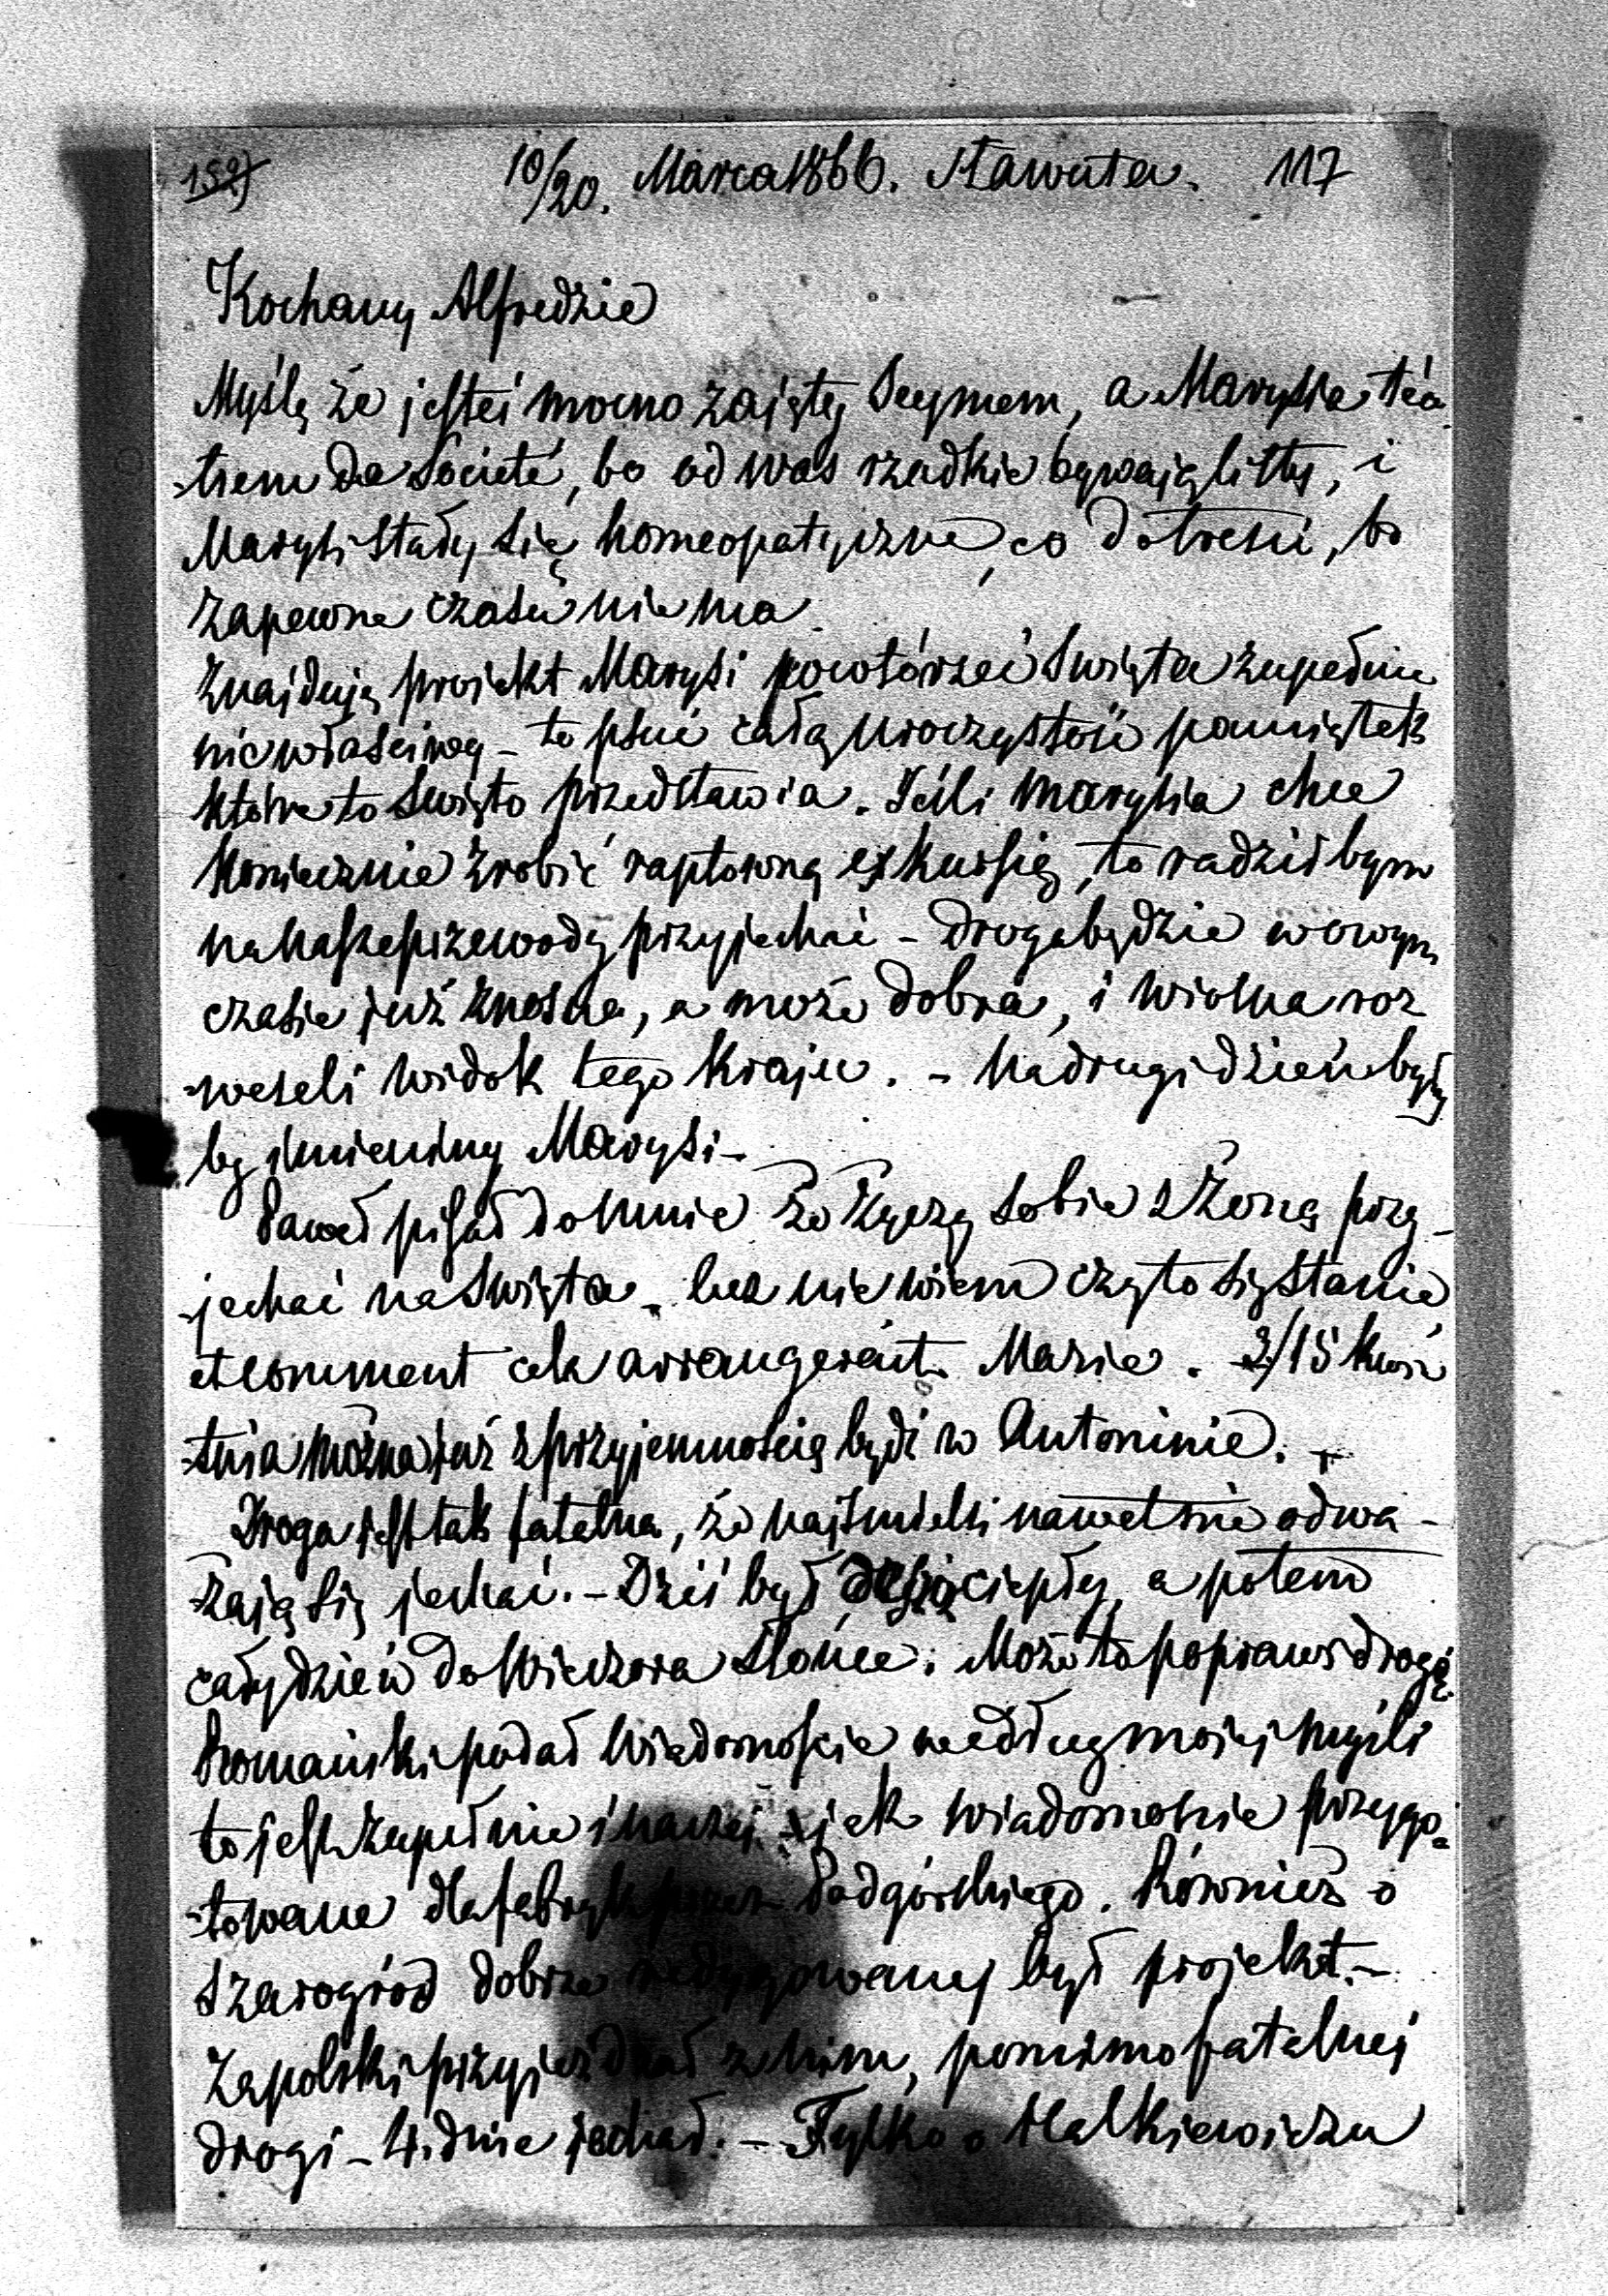 152)
10/20. Marca 1866. Sławuta. 117
Kochany Alfredzie
Myślę że jesteś mocno zajęty Seymem, a Marysia téa
-trem de Societé, bo od was rzadkie bywają listy, i
Marysi stały się homeopatyczne, co do treści, bo
zapewne czasu nie ma.
Znajduję projekt Marysi powtórzeć Swięta zupełnie
niewłaściwy – to psuć całą uroczystość pamiątek
które to Swięto przedstawia. Jeśli Marysia chce
koniecznie zrobić raptowną exkursię, to radził bym
na nasze przewody przyjechać – droga będzie w owym
czasie już znośna, a może dobra, i wiosna roz
-weseli widok tego kraju. – Na drugi dzień były
by imieniny Marysi –
Paweł pisał do mnie że życzy sobie z Żoną przy-
-jechać na Swięta – lecz nie wiem czy to się stanie,
et comment cela arrangerait Marie. 3/15 Kwie
-tnia można już z przyjemnością być w Antoninie. –
Droga jest tak fatalna, że najśmielsi nawet nie odwa-
-żają się jechać. – Dziś był deszcz ciepły, a potem
cały dzień do wieczora słońce. Może to poprawi drogę.
Romański podał wiadomoście według mojej myśli
to jest zupełnie inaczej jak wiadomoście przygo-
-towane dla fabryk przez Podgórskiego. Również o
Szarogród dobrze redygowany był projekt. –
Zapolski przyjeżdżał z nim, pomimo fatalnej
drogi – 4. dnie jechał. – Tylko o Malkiewiczu